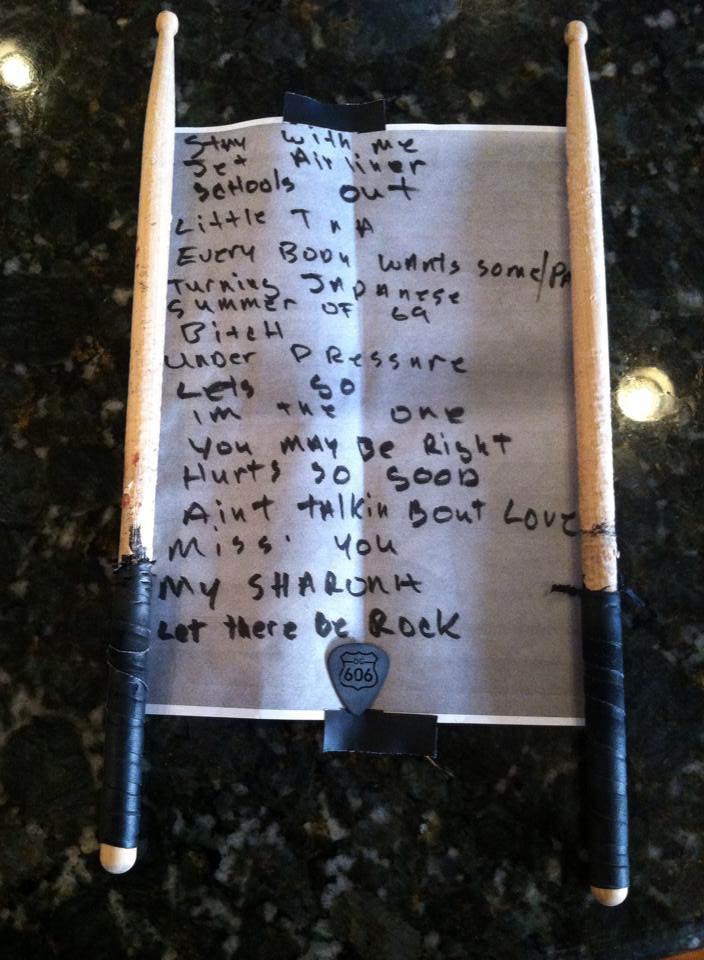 Stay with me
Jet Airliner
Schools out
Little T n A
Every Body wants some/PA
Turning Japanese
Summer of 69
Bitch
Under Pressure
Lets Go
im the one
You may Be Right
Hurts so Good
Aint talkin Bout Love
Miss You
My SHARONA
Let there be Rock
DG
606